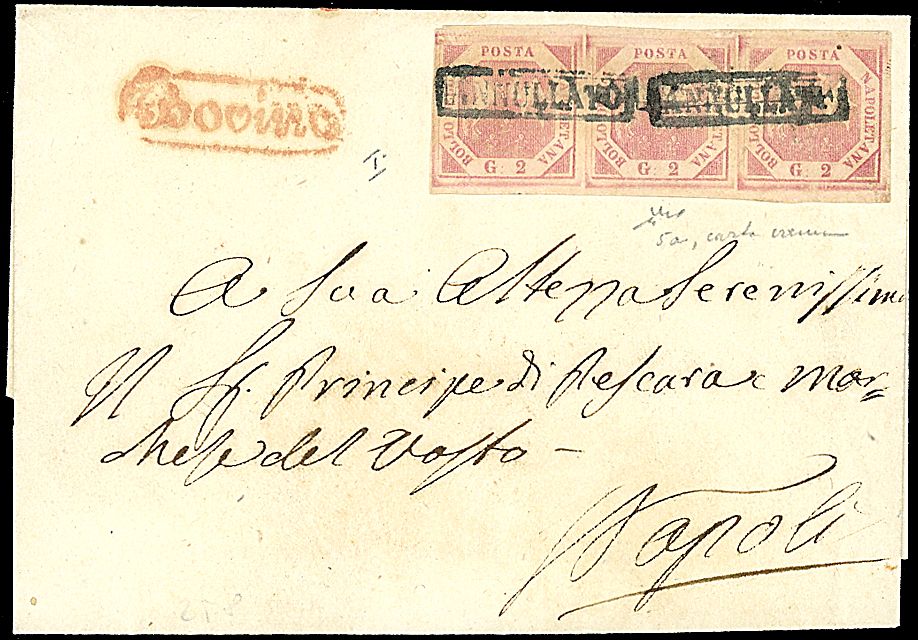 Bovino
POSTA POSTA POSTA
ANNULLATO ANNULLATO
BOLLO NAPOLETANA BOLLO NAPOLETANA BOLLO NAPOLETANA
G. 2 G. 2 G. 2
I.
5a, carta crema
A Sua Altezza Serenissima
Il Sr. Principe di Pescara e Mar=
chese del Vasto –
Napoli